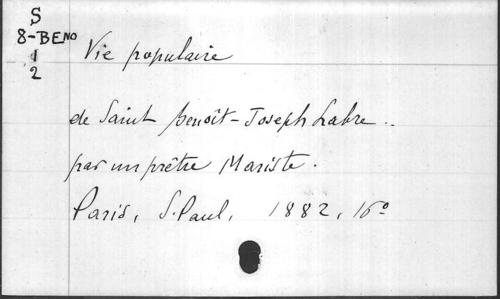 S
8-BENO
1
2
Vie populaire
de Saint Benoît-Joseph Labre..
par un prêtre Mariste.
Paris, S. Paul, 1882, 16º